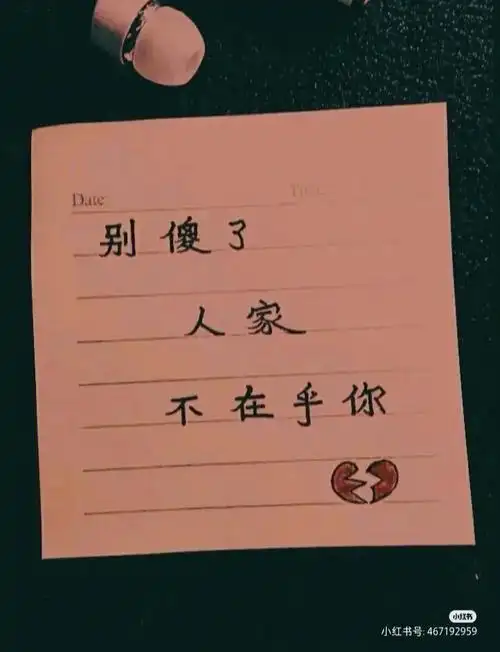 Date
Time
别傻了
人家
不在乎你
小红书
小红书号: 467192959